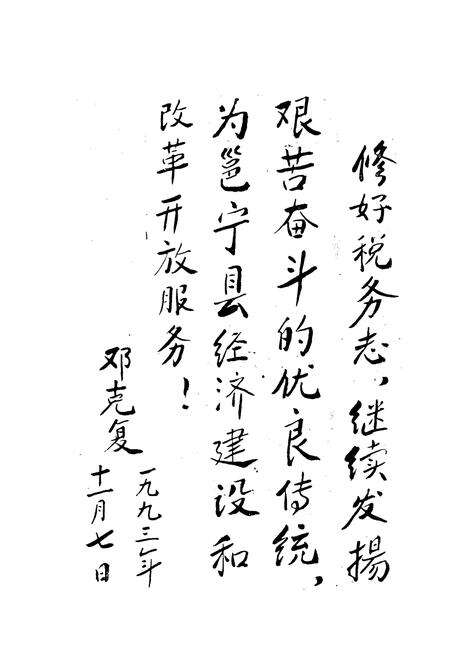 修好税务志，继续发揚
艰苦奋斗的优良传统，
为邕宁县经济建设和
改革开放服务！
邓克复
一九九三年
十一月七日